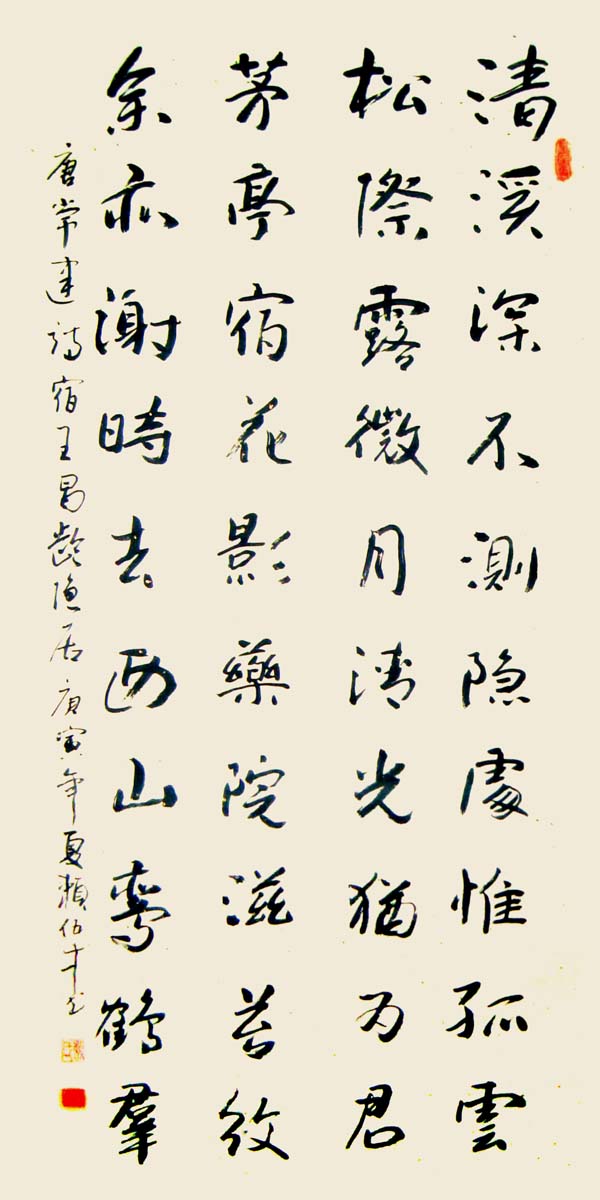 清溪深不測隐處惟孤雲
松際露微月清光猶为君
茅亭宿花影藥院滋苔紋
余亦謝時去西山鸞鶴羣
唐常建诗宿王昌龄隐居庚寅年夏赖伯年书